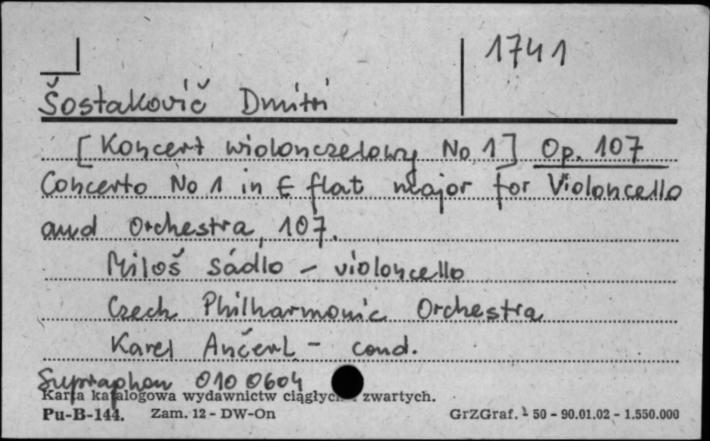 1741
Šostakovič Dmitri
[Koncert wiolonczelowy No 1] Op. 107
Concerto No 1 in E flat major for Violoncello
and Orchestra, 107.
Miloš Sádlo - violoncello
Czech Philharmonic Orchestra
Karel Ančerl - cond.
Supraphon 010 0604
Karta katalogowa wydawnictw ciągłych i zwartych.
Pu-B-144. Zam. 12 - DW-On GrZGraf. - 50 - 90.01.02 - 1.550.000